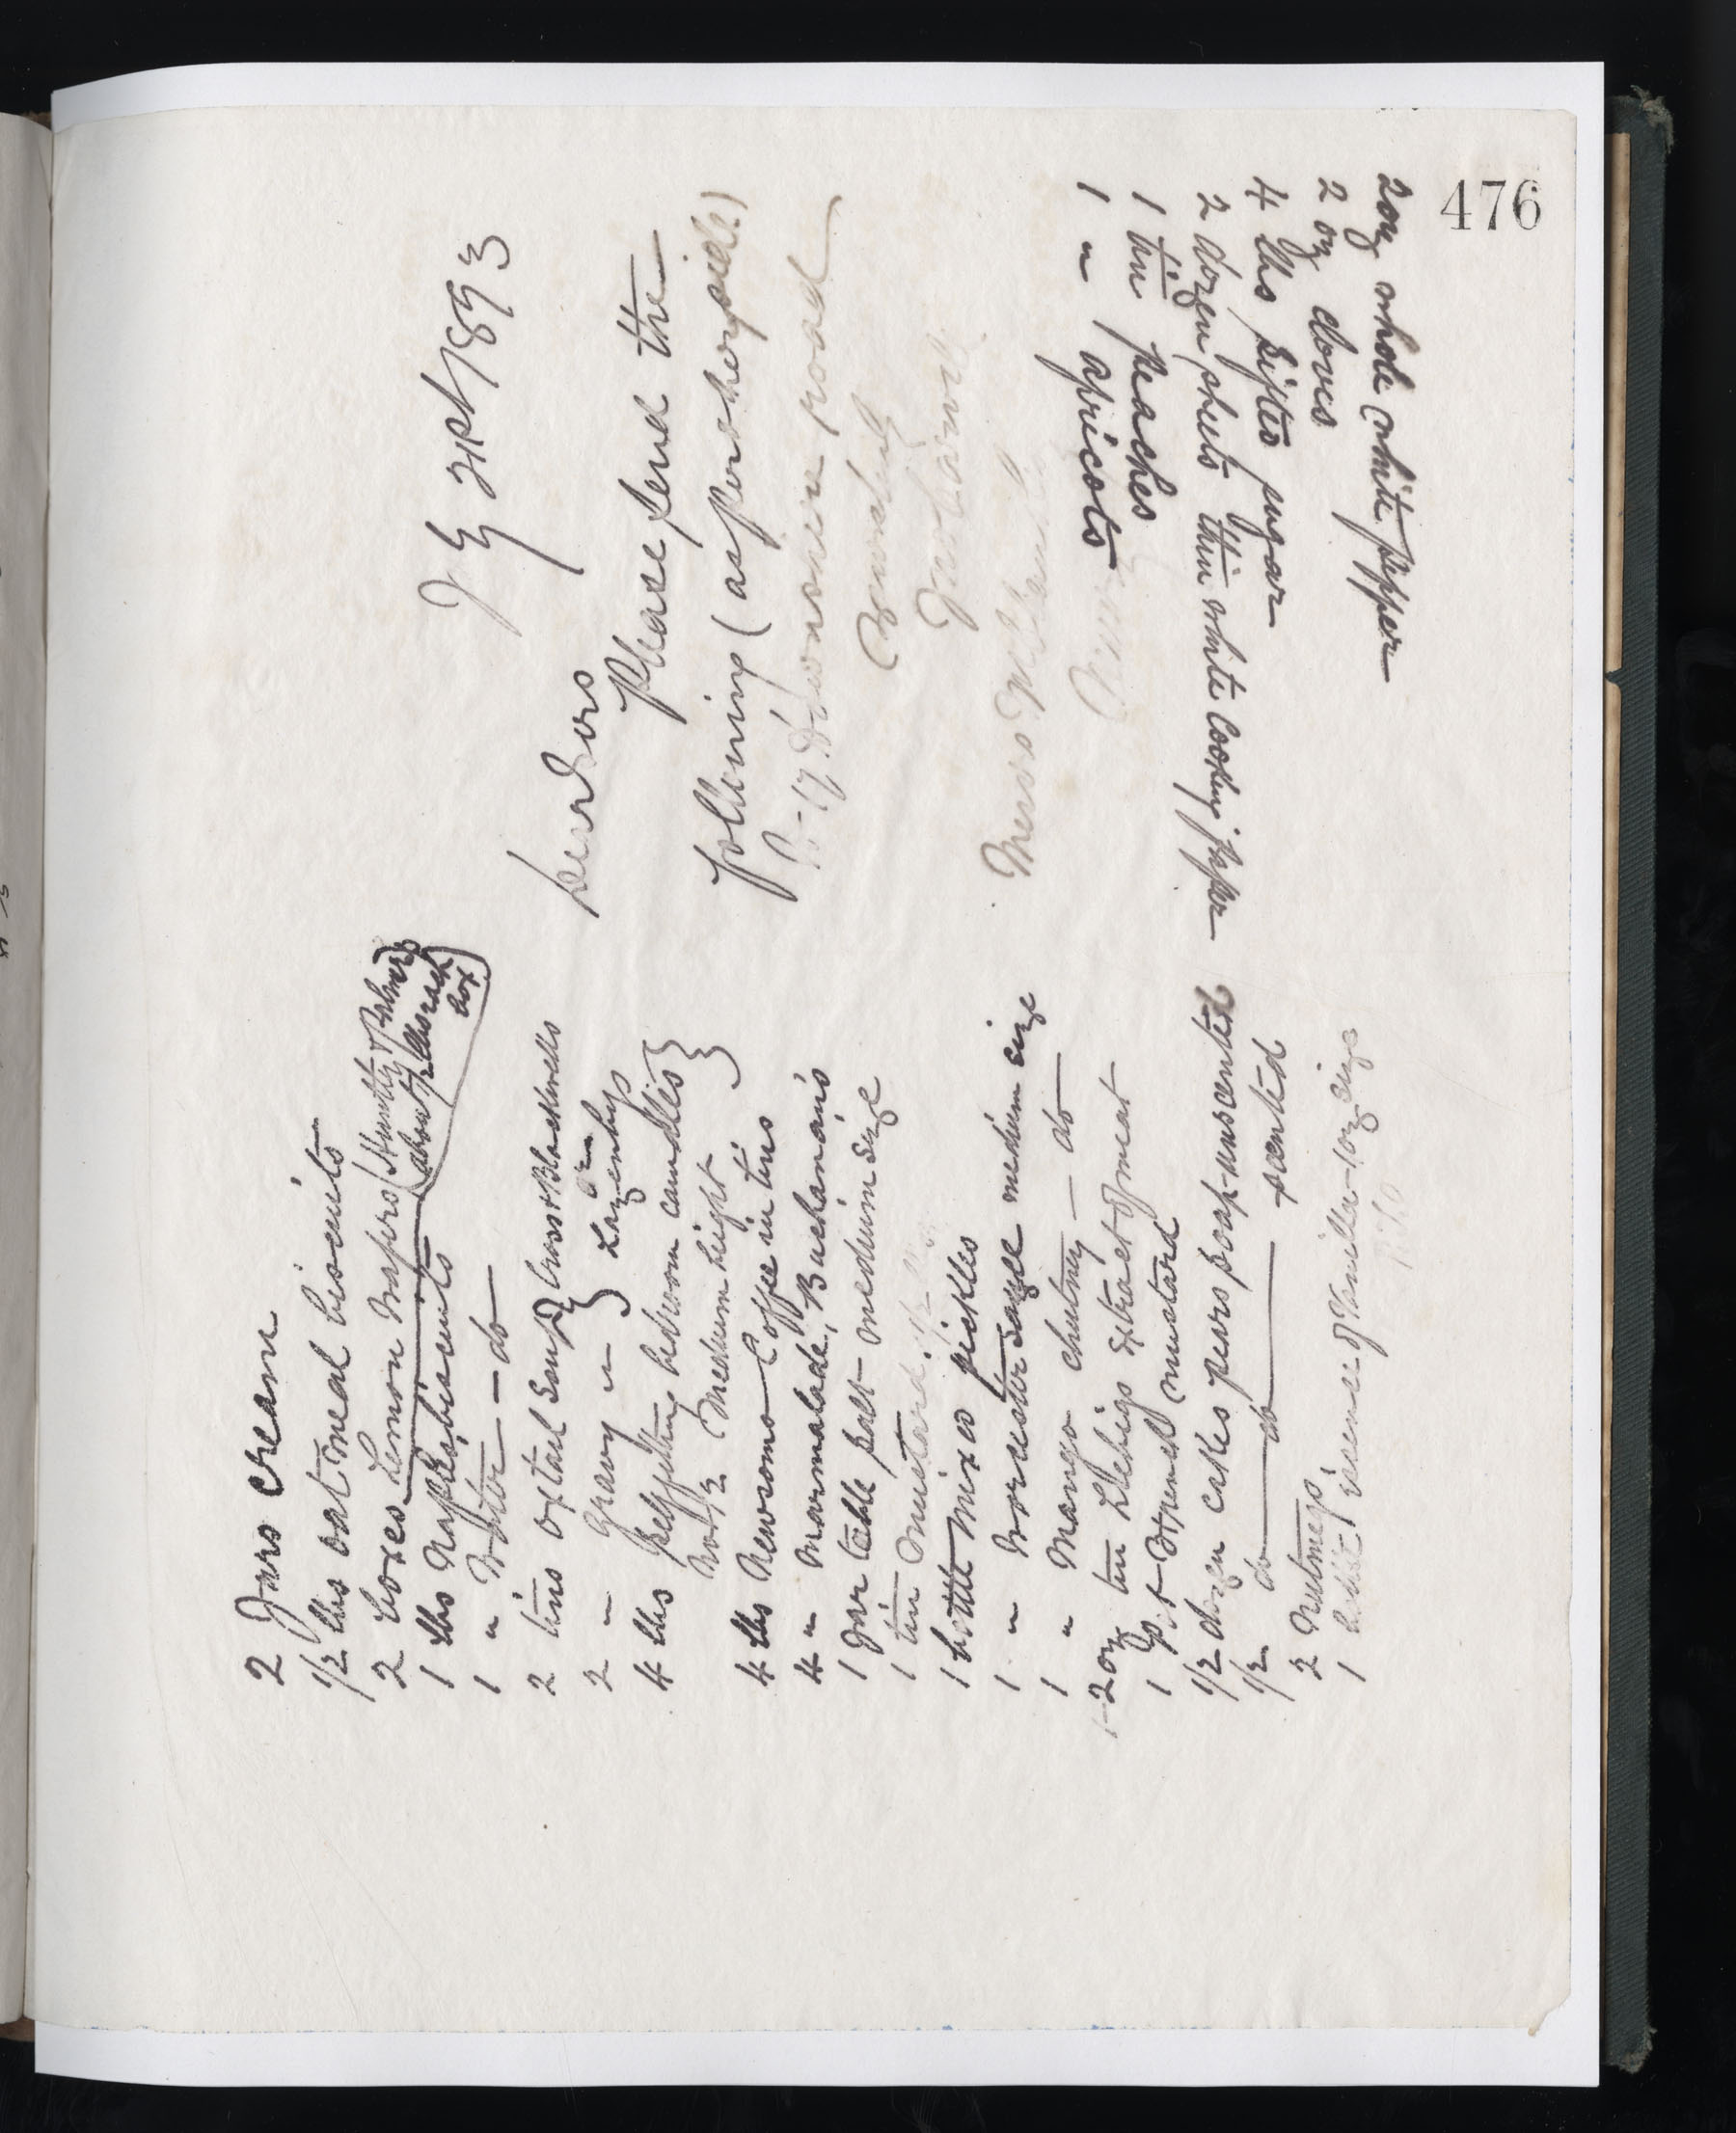 476
J G 21st/1893
Dear Sirs
Please send the
following (as per other side)
to 17 Devonshire road
Messrs
2 Jars cream
1/2 lbs oat meal biscuits
2 boxes Lemon Wafers (Huntly & Palmers
about 1/2 lbs each
box)
1 lbs Naples biscuits
1 " Water — do
2 tins oxtail Soup } Cross & Blackwells
or
2 — Gravy " } Lazenbys
4 lbs selffitting bedroom candles }
No 1/2 Medium Light }
4 lbs Newsoms Coffee in tins
4 " marmalade, Buchanan's
1 Jar table salt — medium size
1 tin mustard 1/2 lb
1 bottle mixed pickles
1 " Worcester sauce medium size
1 " Mango chutney — do
1-2 oz tin Liebigs extract of meat
1 pot French mustard
1/2 dozen cakes pears soap — unscented
1/2 do do scented
2 Nutmegs
1 bottle essence of Vanilla — 1 oz size
P.T.O
2 oz whole white pepper
2 oz cloves
4 lbs sifted sugar
2 dozen sheets thin white Cooking paper
1 tin peaches
1 " apricots